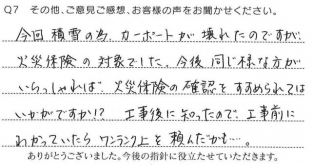 Q7 その他、ご意見ご感想、お客様の声をお聞かせください。
今回積雪の為、カーポートが壊れたのですが、
火災保険の対象でした。今後同じ様な方が
いらっしゃれば、火災保険の確認をすすめられては
いかがですか!? 工事後に知ったので、工事前に
わかっていたらワンランク上を頼んだかも…。
ありがとうございました。今後の指針に役立たせていただきます。